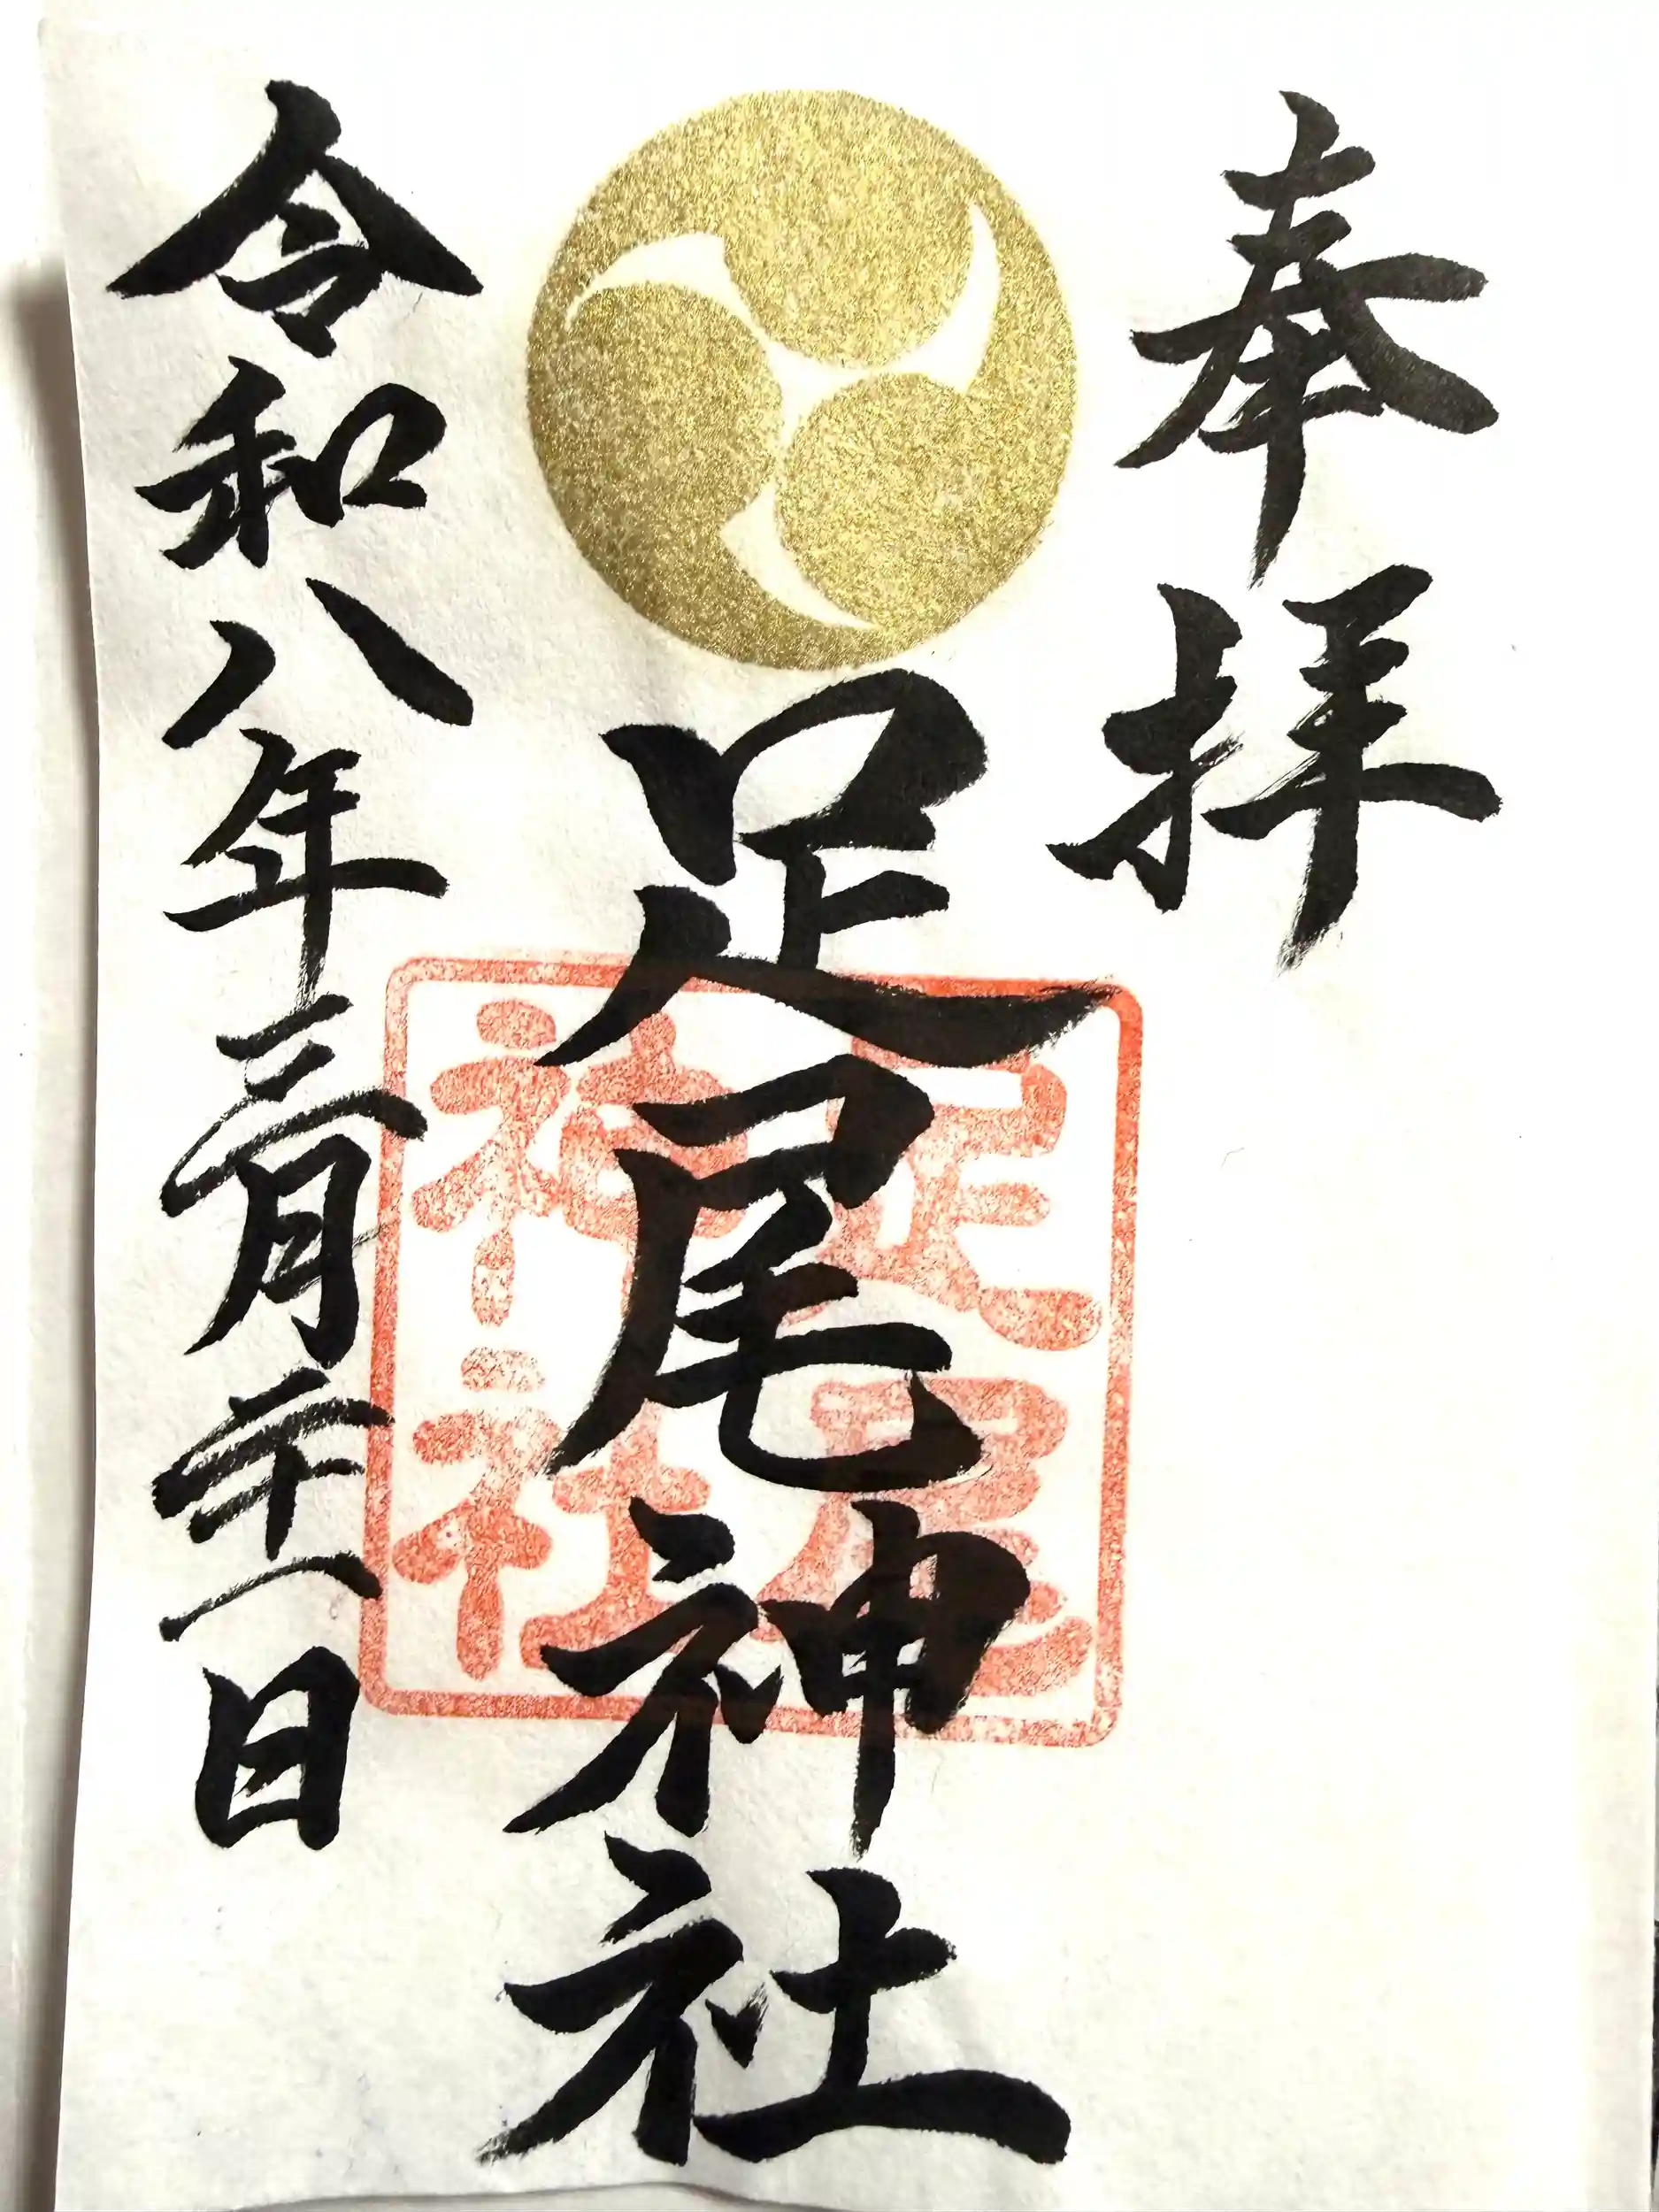 奉拝
足尾神社
足尾
神社
令和八年三月二十一日